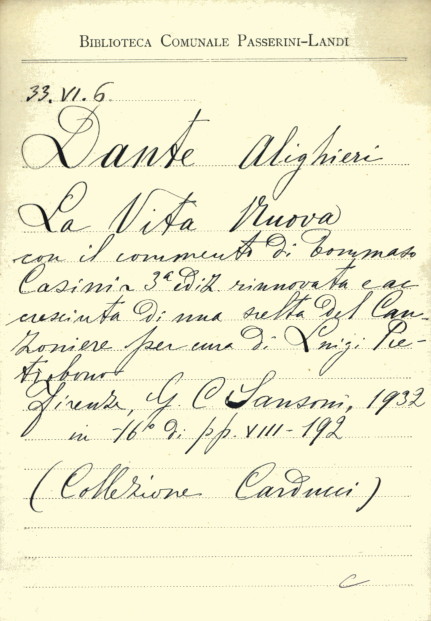 BIBLIOTECA COMUNALE PASSERINI-LANDI
33.VI.6
Dante Alighieri
La Vita Nuova
con il commento di Tommaso
Casini - 3ª ediz rinnovata e ac
cresciuta di una scelta del Can-
zoniere per cura di Luigi Pie-
trobono
Firenze, G. C Sansoni, 1932
in -16° di pp. VIII-192
(Collezione Carducci)
C